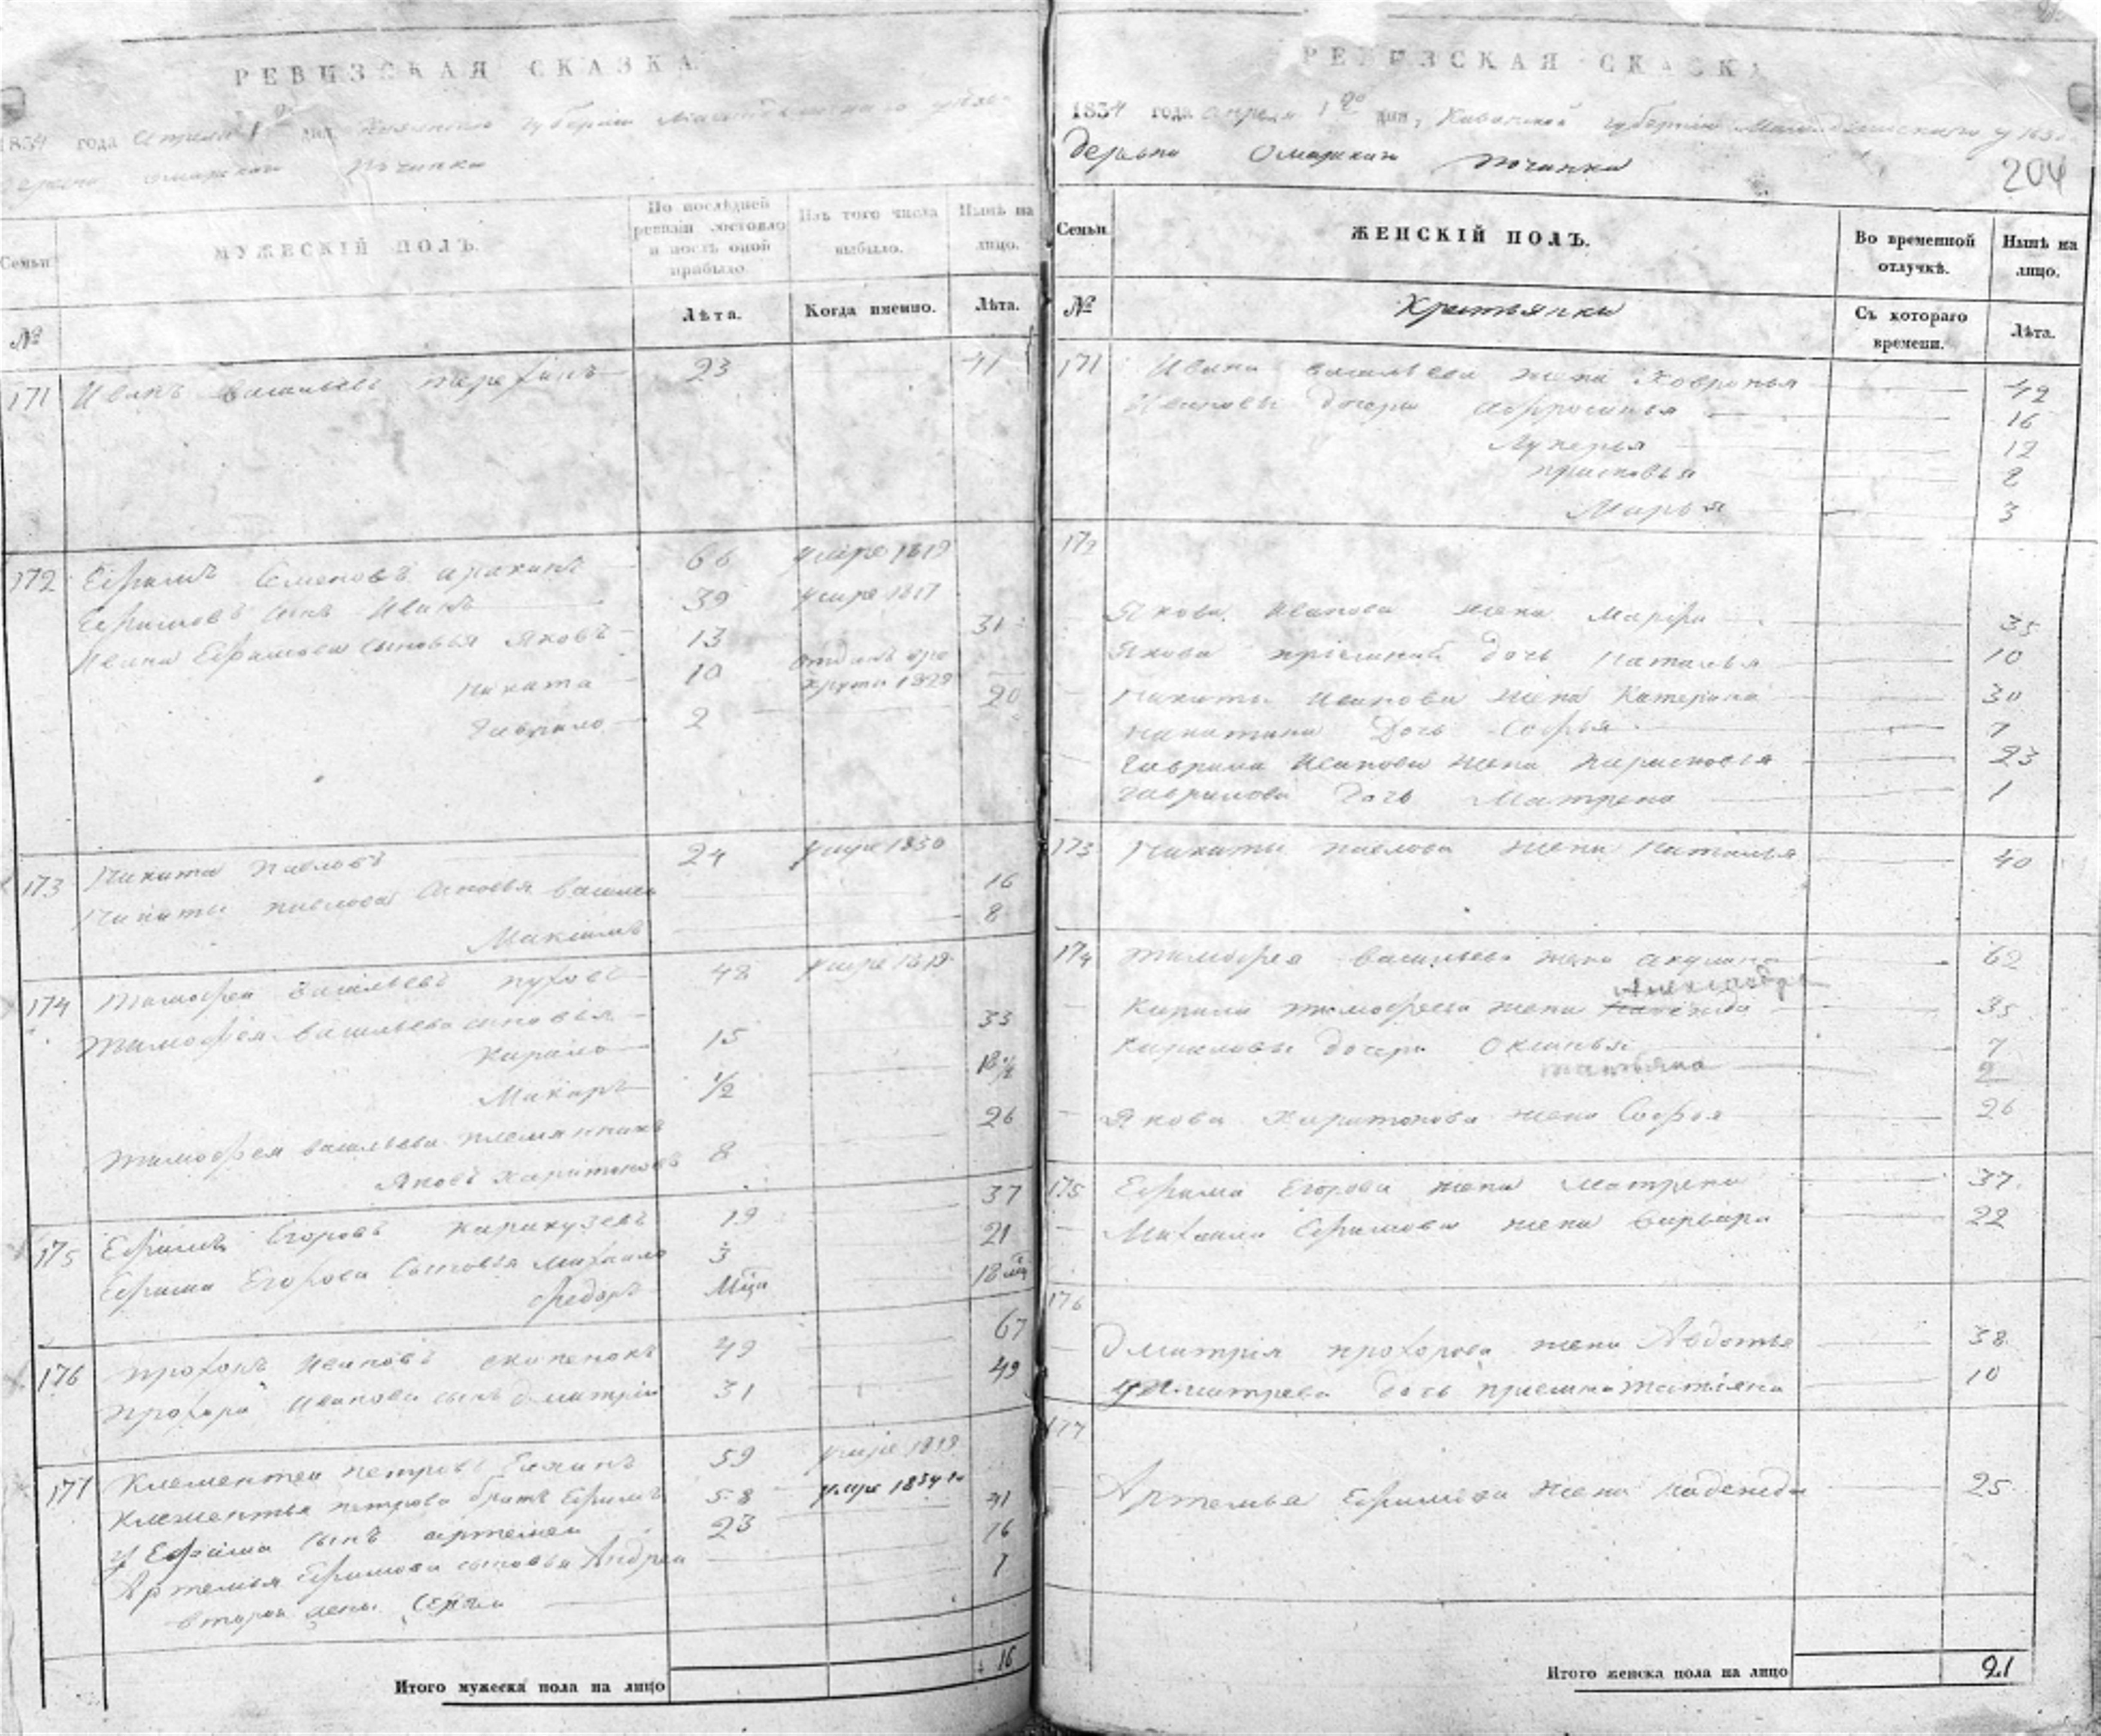 РЕВИЗСКАЯ СКАЗКА
1834 года Апреля 1го дня, Казанской губернии Мамадышскаго уезда
деревни Омарскаго Починка
Семьи
МУЖЕСКІЙ ПОЛЪ.
По послѣдней ревизіи состояло и послѣ оной прибыло
Изъ того числа выбыло.
Нынѣ на лицо.
№
Лѣта.
Когда именно.
Лѣта.
171 Иванъ Васильевъ 23 41
172 Ефримъ Семеновъ 66 умре 1819
Ефримовъ сынъ Иванъ 39 умре 1817
Ивана Ефримова сыновья Яковъ 13 31
Никита 10 отданъ 1829
Гаврило 2 20
173 Никита Павловъ 24 умре 1830
Никиты Павлова сыновья Василей 16
Максимъ 8
174 Тимофей Васильевъ 48 умре 1819
Тимофея Васильева сыновья
Кирило 15 33
Макаръ 1/2 18 1/2
Тимофея Васильева племянникъ
Яковъ Харитоновъ 8 26
175 Ефримъ Егоровъ 19 37
Ефрима Егорова сыновья Михайло 3 21
Федоръ Мца 18
176 Прохоръ Ивановъ 49 67
Прохора Иванова сынъ Дмитрій 31 49
177 Клементей Петровъ 59 умре 1819
Клементья Петрова братъ Ефримъ 58 умре 1834
у Ефрима сынъ Артемей 23 41
Артемья Ефримова сыновья Андрей 16
второй жены Сергей 1
Итого мужеска пола на лицо 16
РЕВИЗСКАЯ СКАЗКА
1834 года апреля 1го дня, Казанской губерніи Мамадышскаго уезда
деревни Омарскаго Починка
204
Семьи
ЖЕНСКІЙ ПОЛЪ.
Во временной отлучкѣ.
Нынѣ на лицо.
№
Крестьянки
Съ котораго времени.
Лѣта.
171 Ивана Васильева жена Ховронья 42
Ивановы дочери Афросинья 16
Лукерья 12
Прасковья 8
Марья 3
172
Якова Иванова жена Марфа 35
Якова приемная дочь Наталья 10
Никиты Иванова жена Катерина 30
Никитина дочь Софья 7
Гаврила Иванова жена Парасковья 23
Гаврилова дочь Матрена 1
173 Никиты Павлова жена Наталья 40
174 Тимофея Васильева жена Акулина 62
Кирила Тимофеева жена 35
Кириловы дочери Оксинья 7
Татьяна 2
Якова Харитонова жена Софья 26
175 Ефрима Егорова жена Матрена 37
Михаила Ефримова жена Варвара 22
176
Дмитрія Прохорова жена Авдотья 38
у Дмитрева дочь приемна Татіяна 10
177
Артемья Ефримова жена Надежда 25
Итого женска пола на лицо 21